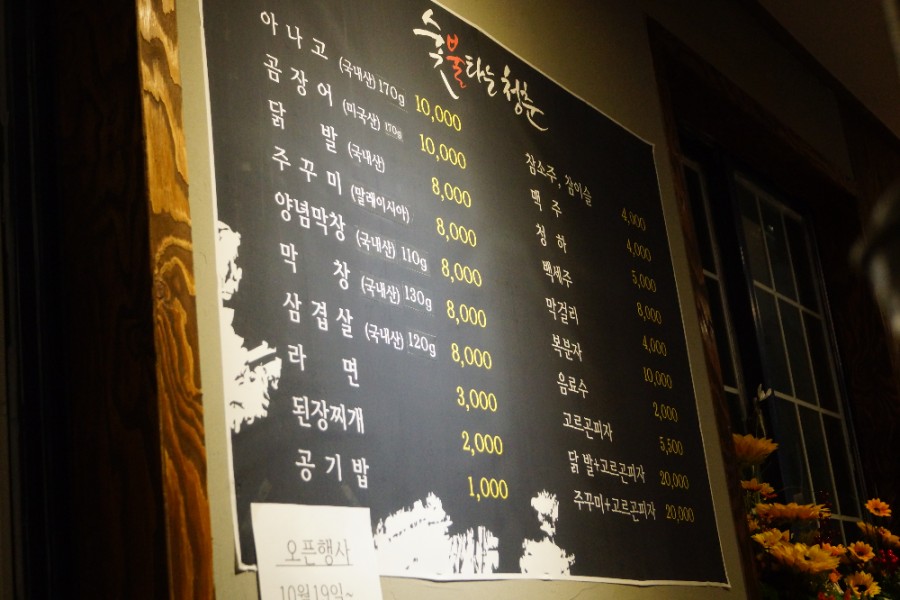 숯불타는 청춘
아나고 (국내산) 170g 10,000
곰장어 (미국산) 170g 10,000
닭 발 (국내산) 8,000
주꾸미 (말레이시아) 8,000
양념막창 (국내산) 110g 8,000
막 창 (국내산) 130g 8,000
삼겹살 (국내산) 120g 8,000
라 면 3,000
된장찌개 2,000
공기밥 1,000
참소주, 참이슬 4,000
맥 주 4,000
청 하 5,000
백세주 8,000
막걸리 4,000
복분자 10,000
음료수 2,000
고르곤피자 5,500
닭 발+고르곤피자 20,000
주꾸미+고르곤피자 20,000
오픈행사
10월19일~